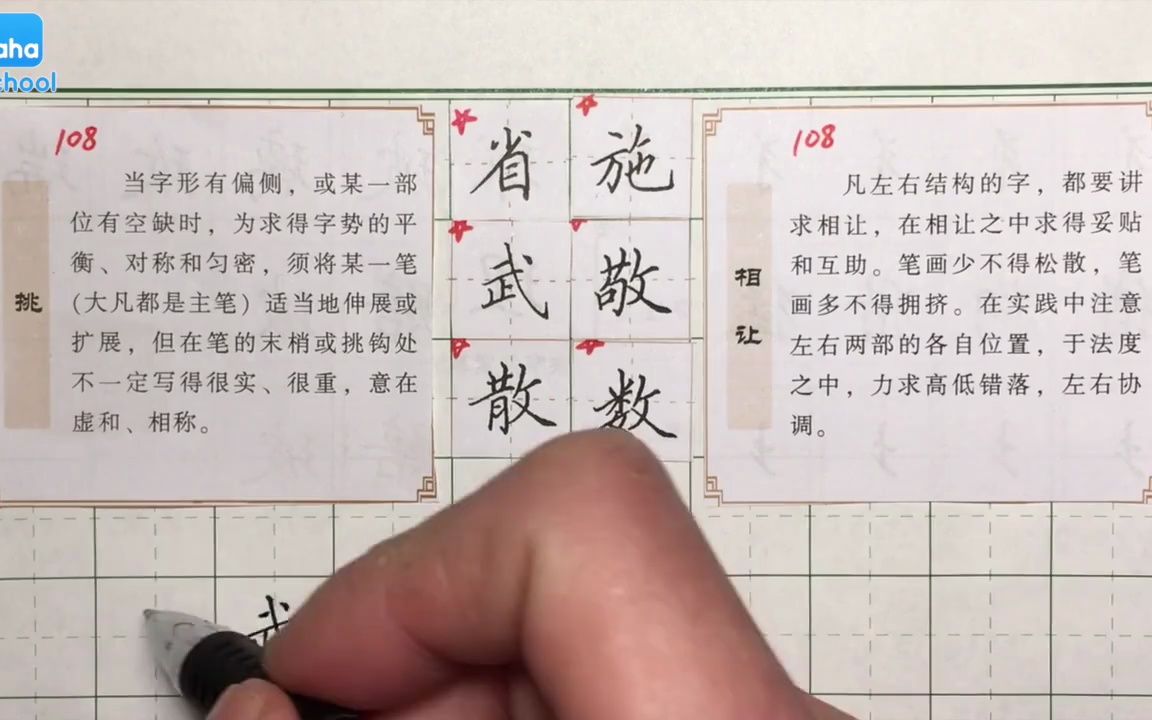 aha
chool
108
挑
当字形有偏侧，或某一部
位有空缺时，为求得字势的平
衡、对称和匀密，须将某一笔
(大凡都是主笔）适当地伸展或
扩展，但在笔的末梢或挑钩处
不一定写得很实、很重，意在
虚和、相称。
省 施
武 敬
散 数
108
相
让
凡左右结构的字，都要讲
求相让，在相让之中求得妥贴
和互助。笔画少不得松散，笔
画多不得拥挤。在实践中注意
左右两部的各自位置，于法度
之中，力求高低错落，左右协
调。